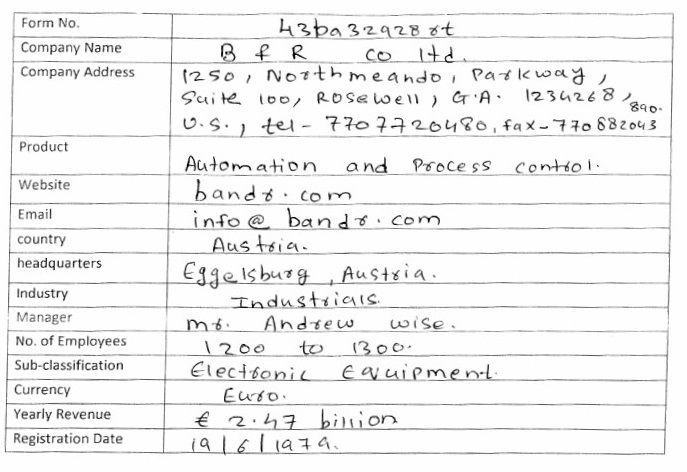 Form No. 43ba32928rt
Company Name B & R co ltd.
Company Address 1250, Northmeando, Parkway,
Suite 100, Rosewell, G.A. 1234268,
890.
U.S., tel- 7707720480, fax-770882043
Product Automation and Process control.
Website bandr.com
Email info@bandr.com
country Austria.
headquarters Eggelsburg, Austria.
Industry Industrials.
Manager mr. Andrew wise.
No. of Employees 1200 to 1300.
Sub-classification Electronic Equipment.
Currency Euro.
Yearly Revenue € 2.47 billion
Registration Date 19/6/1979.